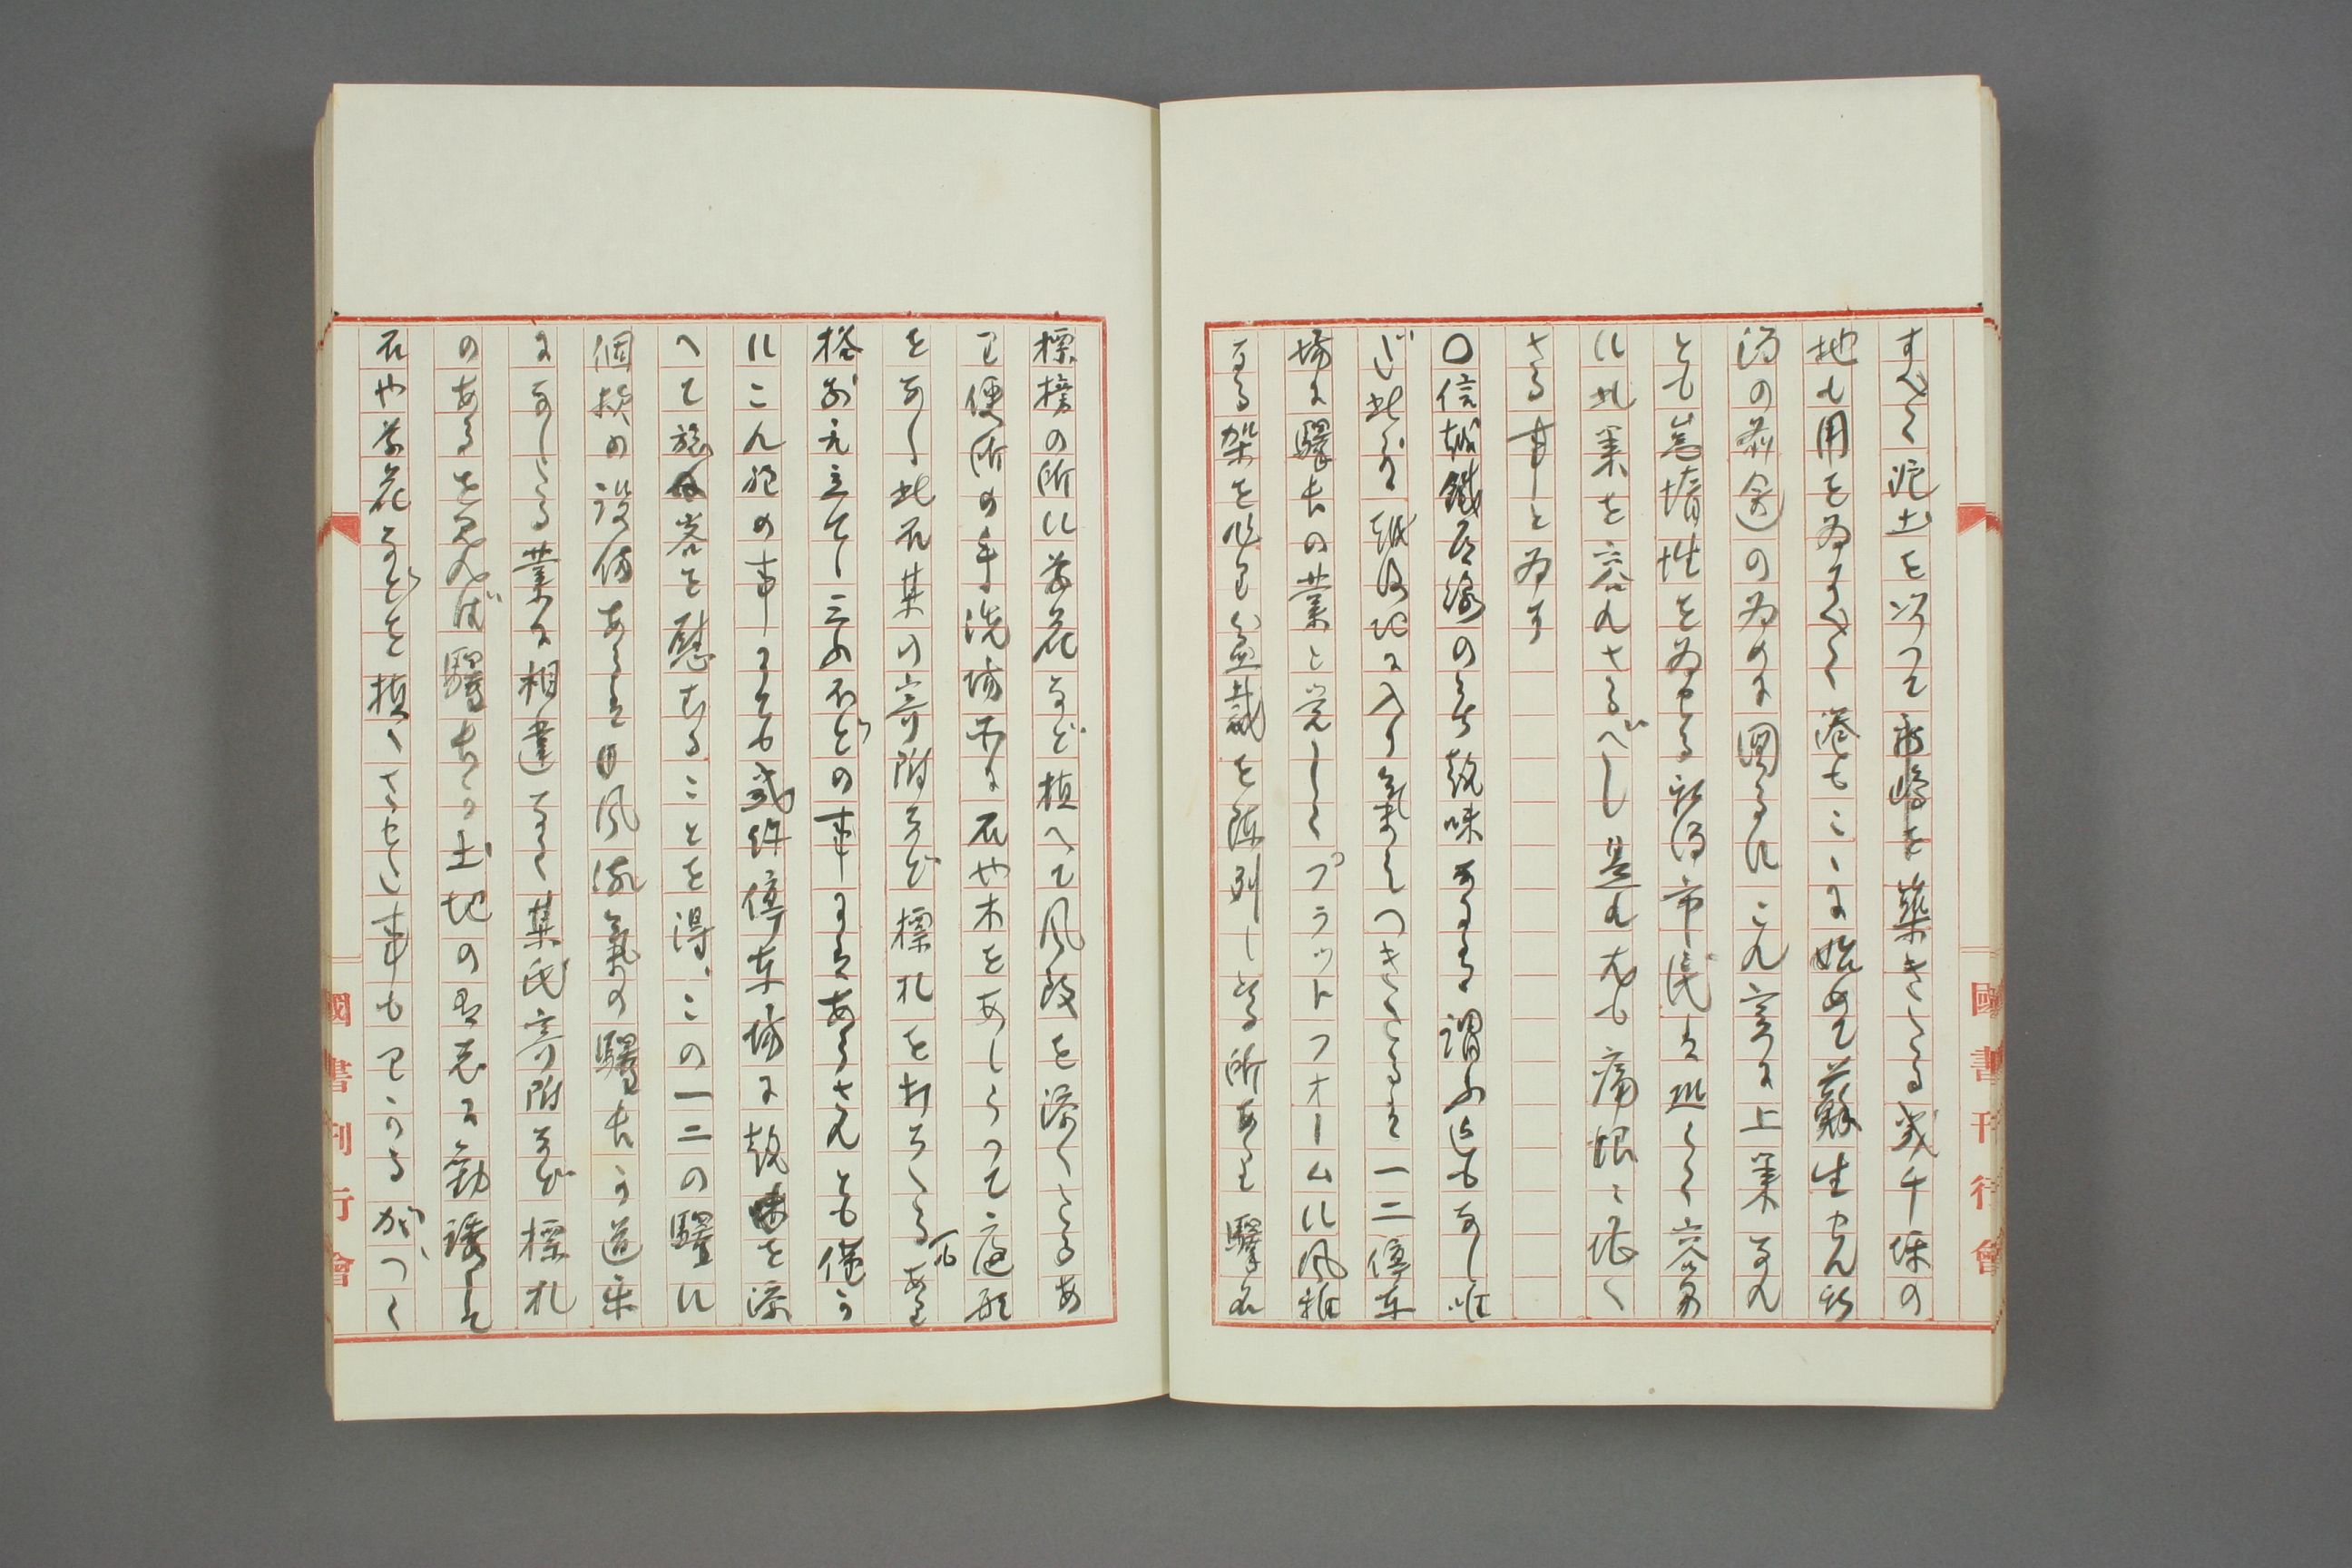 すべく泥土を以つて新嶋を築きたる幾千坪の
地も用を為すべく港もこゝに始めて蘇生せん新
潟の前途の為めに図るにこれ実に上策なれ
とも惰性を為せる新潟市民は斑しく容易
に此策を容れさるべし是れ尤も痛恨に堪へ
さる事と為す
〇信越鐵道線のうち趣味あるは謂ふ迄もなし唯
だ此ほど越後地に入り気のつきたるは一二停車
場に驛長の業と覚しくプラットフオームに風雅
なる架を作り盆栽を陳列しある所あり驛名
標榜の所に草花など植へて風致を添へたるあ
り便所の手洗場所に石や木をあしらつて庭形
をなし此石某の寄附など標札を打ちたるあり
格別之立てし云ふほどの事にはあらされとも僅か
にこれ程の事にても幾許停車場に趣味を添
へて旅客を慰むることを得、この一二の驛に
個様の設備あるは風流氣の驛長か道楽
になしたる業に相違なく某氏寄附など標札
のあるを見れば驛長か土地の有志に勧誘して
石や草花などを植へさせし事もわかるがつく
國書刊行會
國書刊行會